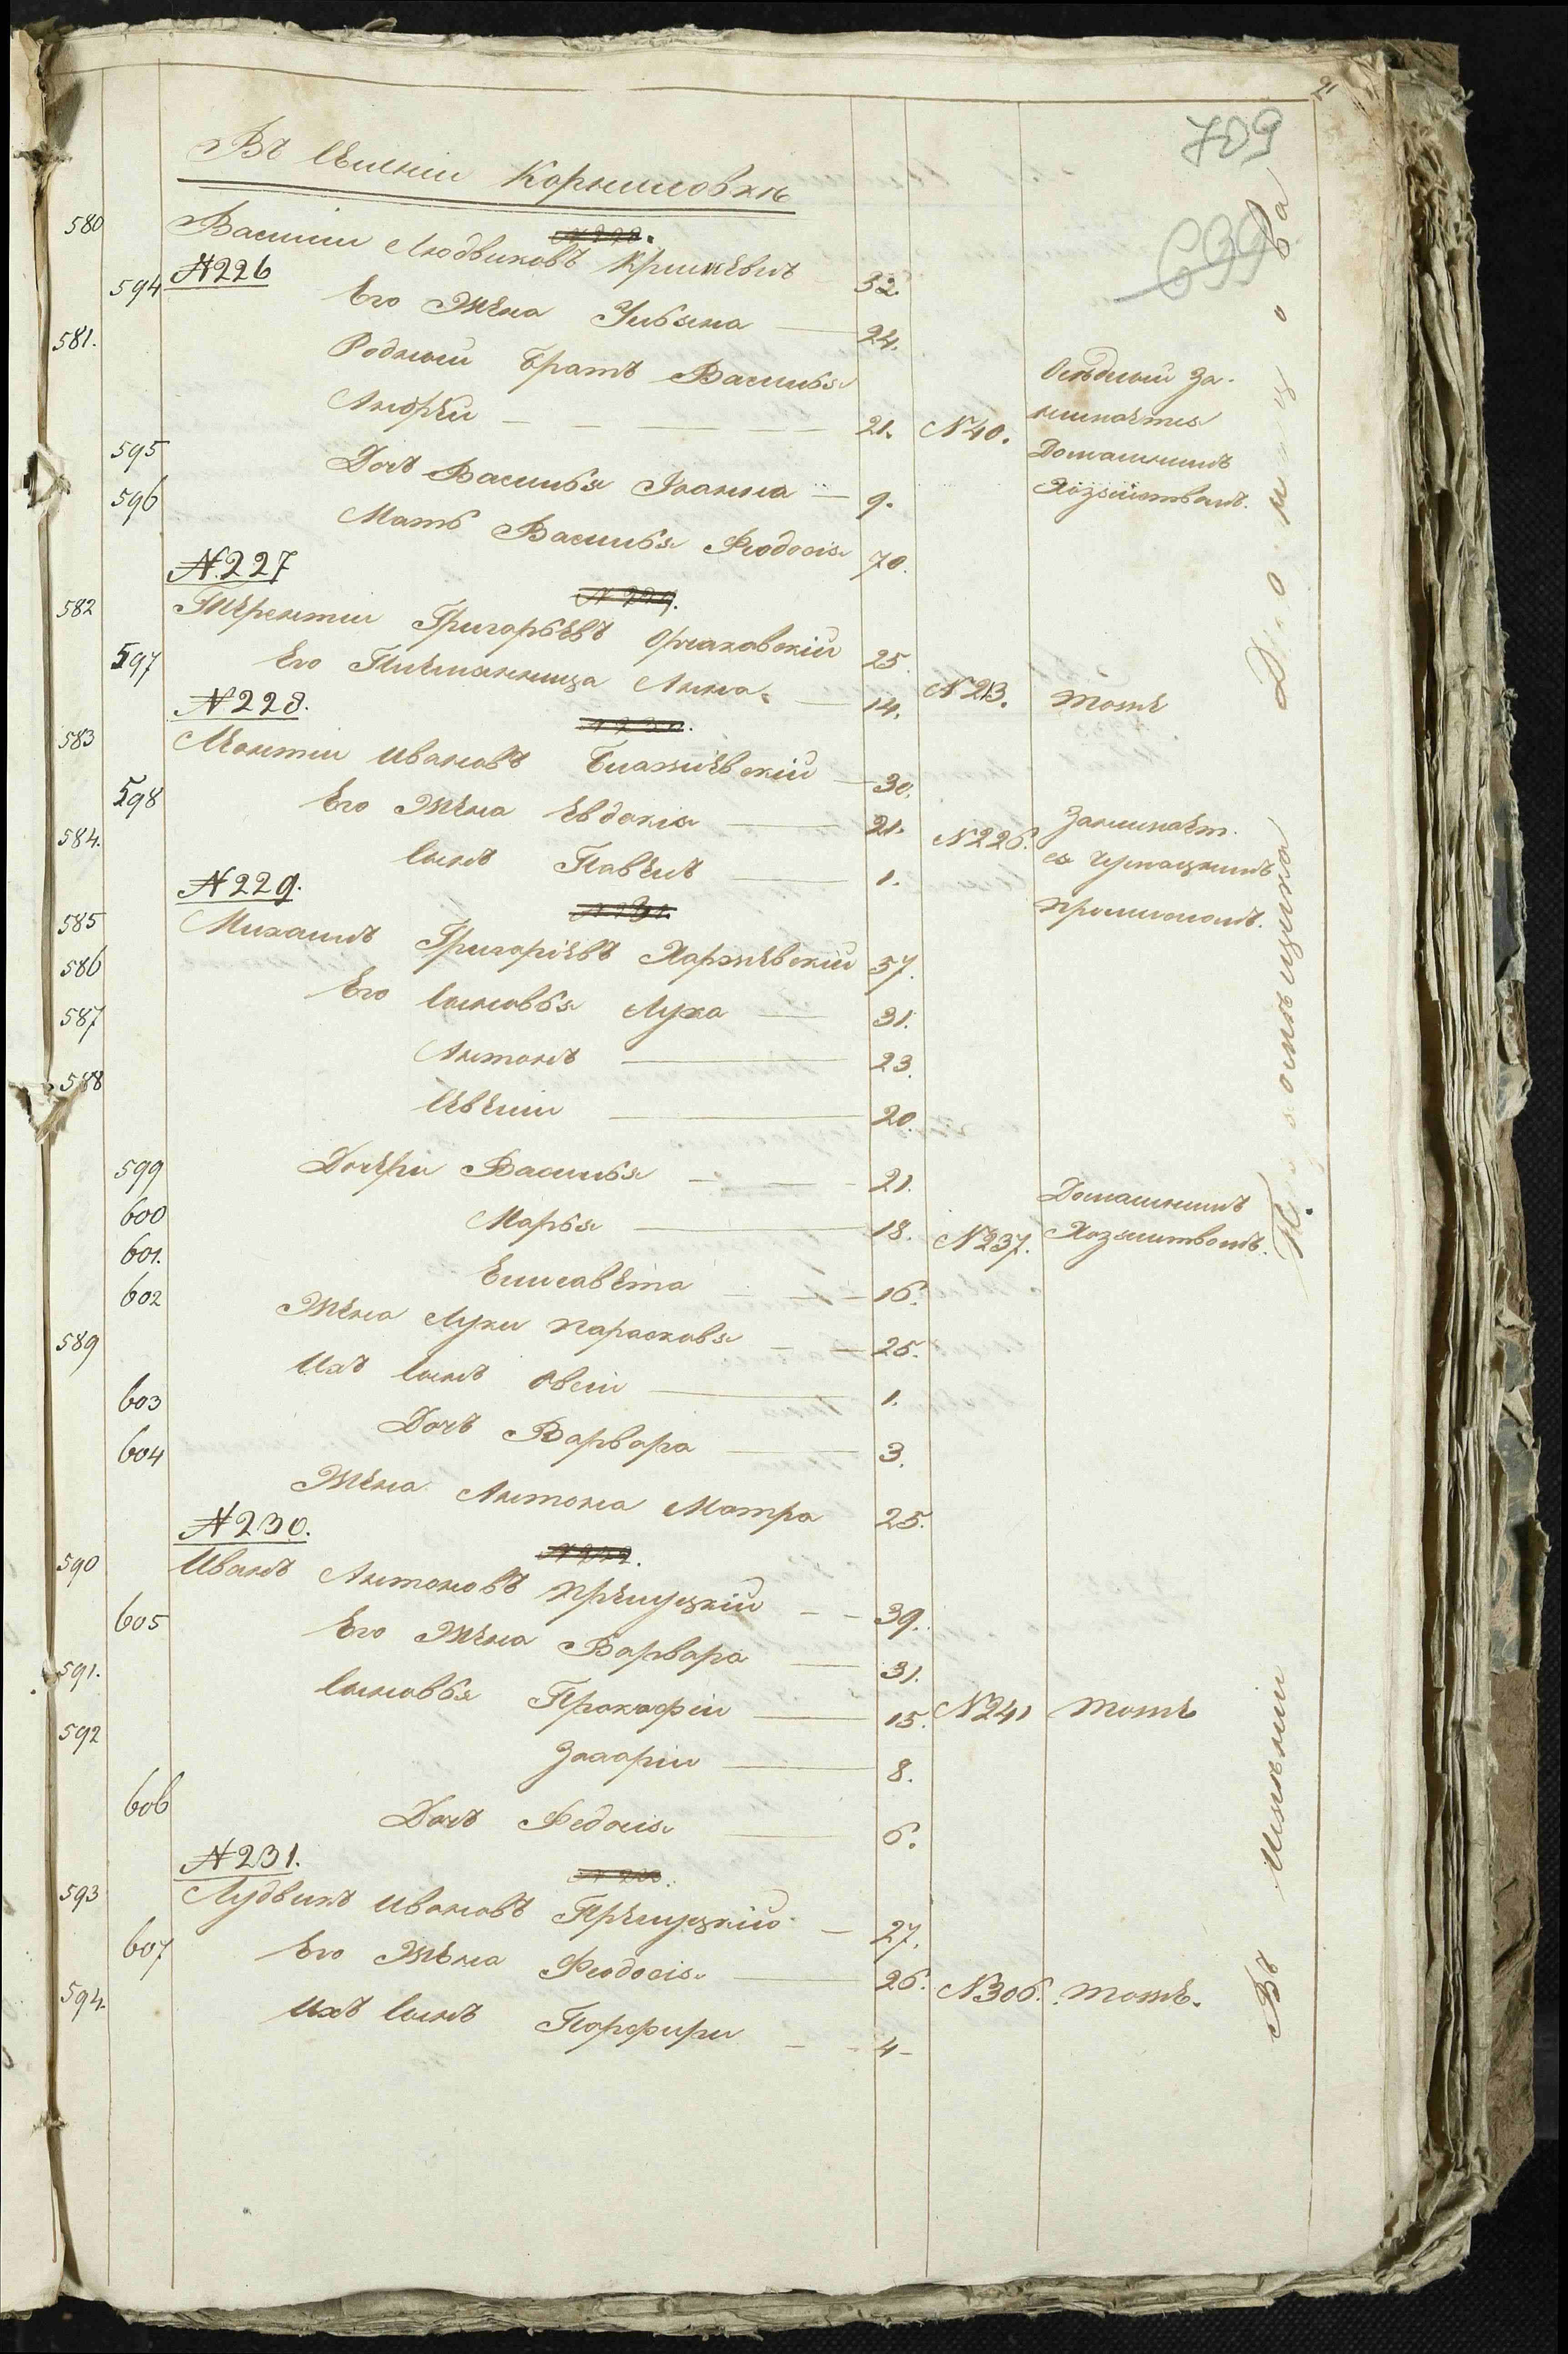 21
709
699
Въ Селеніи Корниловкѣ
N 228.
580 Василіи Людвиковъ Кришевич 32.
N226
594 Его Жена Ульяна 24.
581. Родныи братъ Василья
Андрей 21. N40. Осѣдлыи За-
нимается
Домашнимъ
Хозяйствомъ.
595 Дочъ Василья Іоанна 9.
596 Мать Василья Феодосія 70.
N.227
N 229.
582 Терентіи Григорьевъ Орчаховскій 25.
597 Его Племянница Анна 14. N213. тоже
N228.
N 230.
583 Леонтіи Ивановъ Блажіевскій 30.
598 Его Жена Евдокія 21. N226. Занимает.
584. Сынъ Павелъ 1. съ Чумацкимъ
промысломъ.
N229.
N 231.
585 Михаилъ Григоріевъ Харжевскій 57.
586 Его Сыновья Лука 31.
587 Антонъ 23.
588 Евсеіи 20.
599 Дочери Василья 21.
600 Марья 18. N237. Домашнимъ
Хозяйствомъ.
601. Елисавета 16.
602 Жена Луки Парасковья 25.
589 Ихъ Сынъ Овсіи 1.
603 Дочъ Варвара 3.
604 Жена Антона Мотра 25.
N230.
N 232.
590 Иванъ Антоновъ Прелуцкій 39.
605 Его Жена Варвара 31.
591. Сыновья Прокофіи 15. N241 тоже
592 Захаріи 8.
606 Дочъ Федосія 6.
N231.
593 Лудвикъ Ивановъ Прелуцкій 27.
607 Его Жена Феодосія 26. N306. тоже.
594. Ихъ Сынъ Порфири 4
Въ Имѣніи Помѣщика